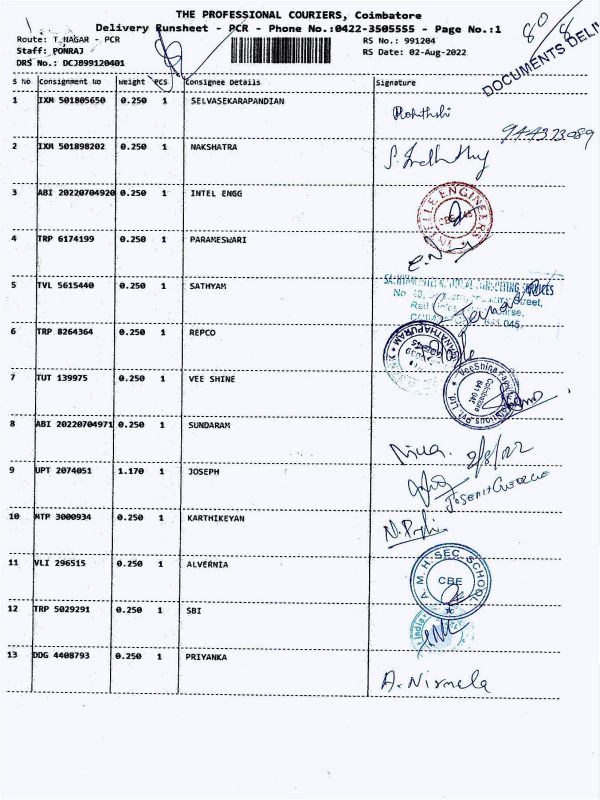 THE PROFESSIONAL COURIERS, Coimbatore
Delivery Runsheet - PCR - Phone No.:0422-3505555 - Page No.:1
Route: T NAGAR - PCR
Staff: PONRAJ
DRS No.: DCJB99120401
RS No.: 991204
RS Date: 02-Aug-2022
80/8
DOCUMENTS DELI
S No Consignment No Weight PCS Consignee Details Signature
1 IXM 501805650 0.250 1 SELVASEKARAPANDIAN
2 IXM 501898202 0.250 1 NAKSHATRA
3 ABI 20220704920 0.250 1 INTEL ENGG
ENGINEERS
CBE
4 TRP 6174199 0.250 1 PARAMESWARI
5 TVL 5615440 0.250 1 SATHYAM
6 TRP 8264364 0.250 1 REPCO
7 TUT 139975 0.250 1 VEE SHINE
VeeShine
Coimbatore
8 ABI 20220704971 0.250 1 SUNDARAM
2/8/22
9 UPT 2074051 1.170 1 JOSEPH
10 MTP 3000934 0.250 1 KARTHIKEYAN
11 VLI 296515 0.250 1 ALVERNIA
A. M. H. SEC. SCHOOL
CBE
12 TRP 5029291 0.250 1 SBI
13 DDG 4408793 0.250 1 PRIYANKA
A. Nirmela